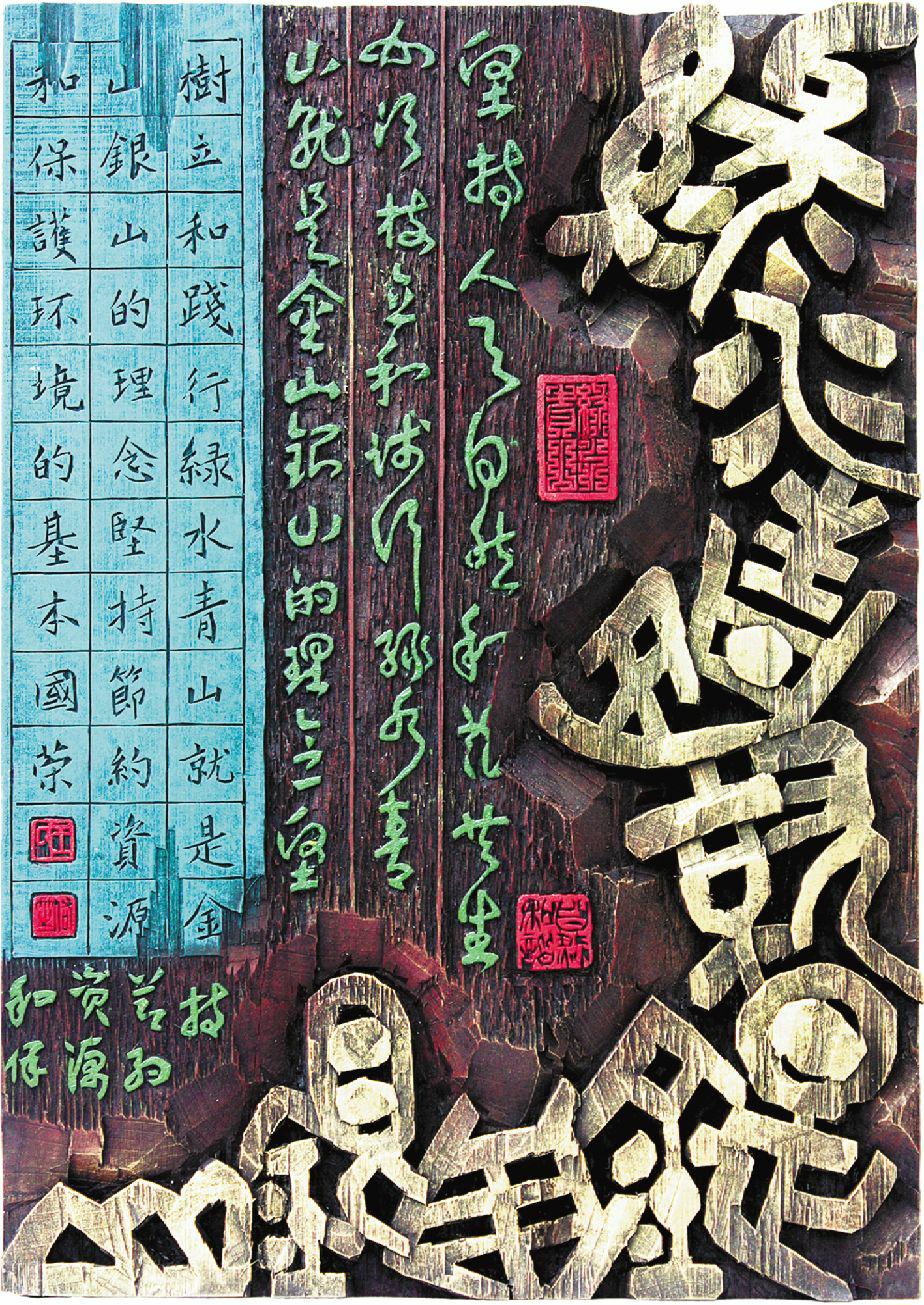 綠水青山就
是金山銀山
坚持人与自然和谐共生
必须树立和践行绿水青
山就是金山银山的理念坚
持
节约
资源
和保
樹立和踐行緑水青山就是金
山銀山的理念堅持節約資源
和保護环境的基本國策